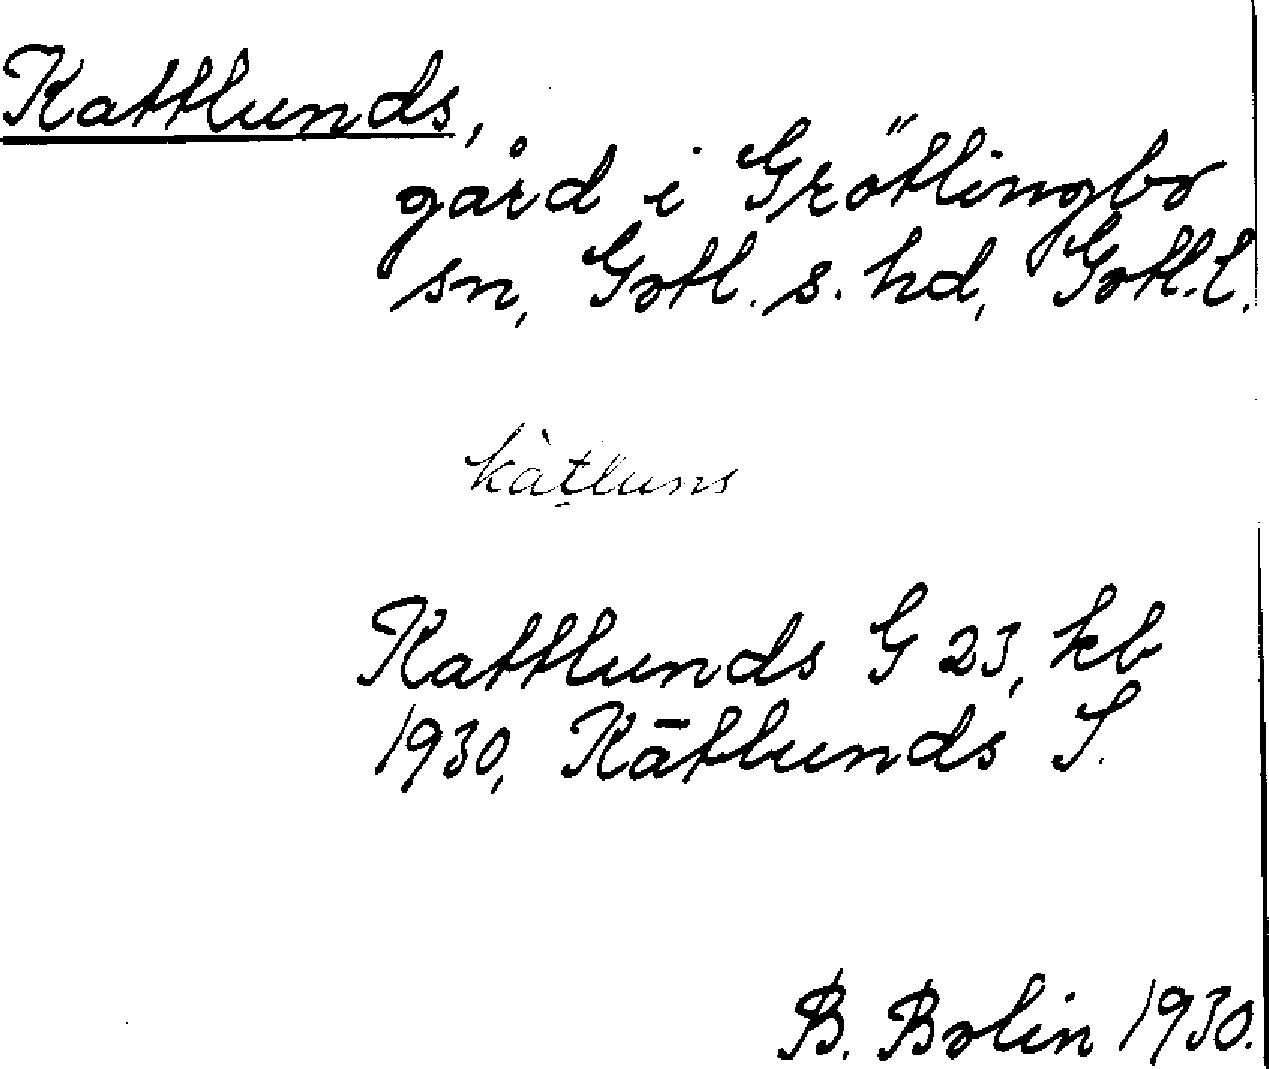 Kattlunds,
gård i Grötlingbo
sn, Gotl. s. hd, Gotl. l.
kàt̠luns
Kattlunds G 23, kb
1930, Kātlunds S.
B. Bolin 1930.